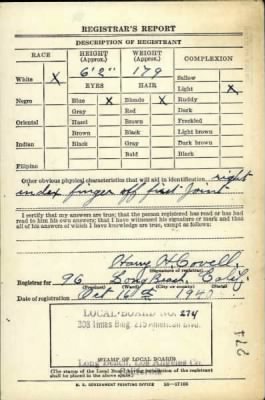 REGISTRAR'S REPORT
DESCRIPTION OF REGISTRANT
RACE HEIGHT (Approx.) WEIGHT (Approx.) COMPLEXION
6'2" 179
White X Sallow
EYES HAIR Light X
Negro Blue X Blonde X Ruddy
Gray Red Dark
Oriental Hazel Brown Freckled
Brown Black Light brown
Indian Black Gray Dark brown
Bald Black
Filipino
Other obvious physical characteristics that will aid in identification right
index finger off first joint
I certify that my answers are true; that the person registered has read or has had
read to him his own answers; that I have witnessed his signature or mark and that
all of his answers of which I have knowledge are true, except as follows:
Harry H Covell
(Signature of registrar)
Registrar for 96 Long Beach, Calif.
(Precinct) (Ward) (City or county) (State)
Date of registration Oct 16th 1940
LOCAL BOARD NO. 274
308 Times Bldg. 215 American Blvd.
274
STAMP OF LOCAL BOARD
Long Beach, Los Angeles Co.
California
(The stamp of the Local Board having jurisdiction of the registrant
shall be placed in the above space.)
U. S. GOVERNMENT PRINTING OFFICE 16—17105